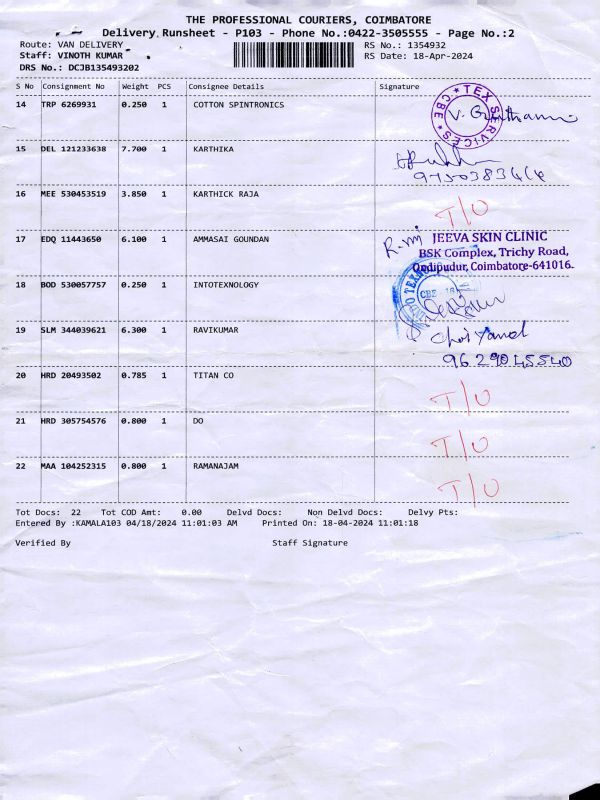 THE PROFESSIONAL COURIERS, COIMBATORE
Delivery Runsheet - P103 - Phone No.:0422-3505555 - Page No.:2
Route: VAN DELIVERY RS No.: 1354932
Staff: VINOTH KUMAR RS Date: 18-Apr-2024
DRS No.: DCJB135493202
S No Consignment No Weight PCS Consignee Details Signature
14 TRP 6269931 0.250 1 COTTON SPINTRONICS
TEX SERVICES CBE
15 DEL 121233638 7.700 1 KARTHIKA
9750383414
16 MEE 530453519 3.850 1 KARTHICK RAJA T/O
17 EDQ 11443650 6.100 1 AMMASAI GOUNDAN
JEEVA SKIN CLINIC
BSK Complex, Trichy Road,
Ondipudur, Coimbatore-641016.
18 BOD 530057757 0.250 1 INTOTEXNOLOGY
CBE
19 SLM 344039621 6.300 1 RAVIKUMAR
9629045540
20 HRD 20493502 0.785 1 TITAN CO T/O
21 HRD 305754576 0.800 1 DO T/O
22 MAA 104252315 0.800 1 RAMANAJAM T/O
Tot Docs: 22 Tot COD Amt: 0.00 Delvd Docs: Non Delvd Docs: Delvy Pts:
Entered By :KAMALA103 04/18/2024 11:01:03 AM Printed On: 18-04-2024 11:01:18
Verified By Staff Signature